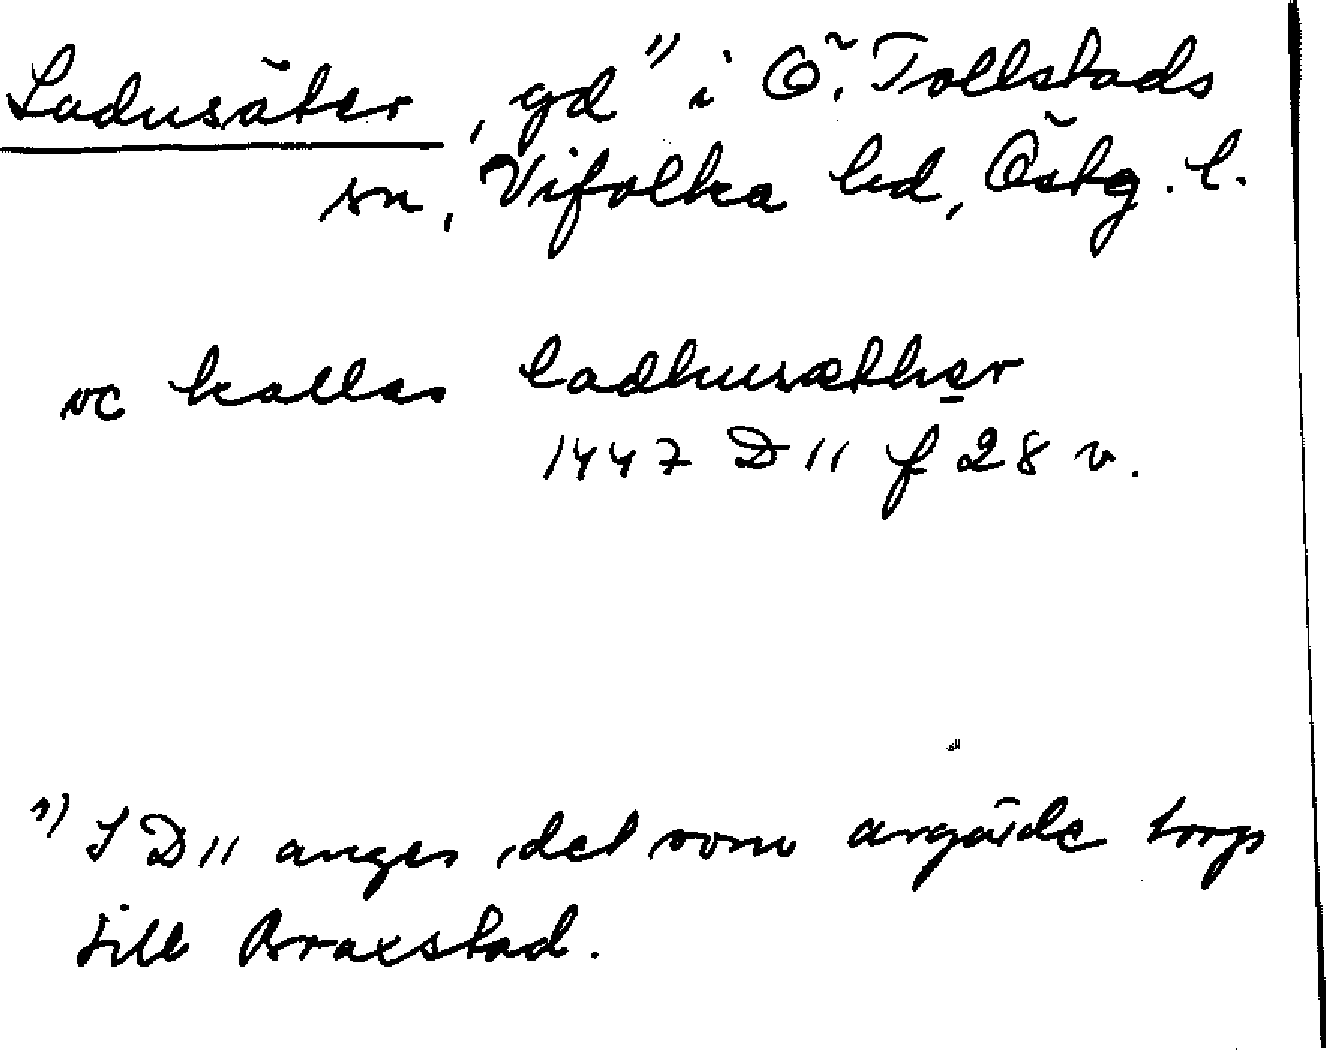 Ladusäter, gd 1) i Ö. Tollstads
sn, Vifolka hd, Östg. l.
vc kallas ladhusæther
1447 D 11 f 28 v.
1) I D 11 anges det som avgärde torp
till Braxstad.